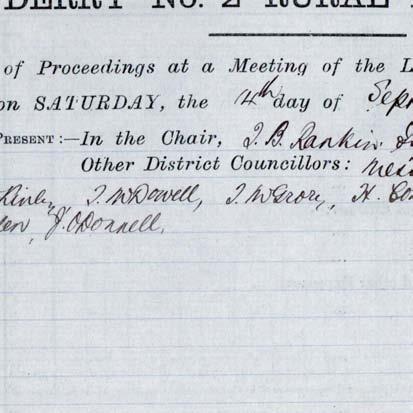 DERRY No. 2 RURAL
of Proceedings at a Meeting of the L
on SATURDAY, the 4th day of Sep
PRESENT:—In the Chair, J. B. Rankin
Other District Councillors: Mess
Kinley, J. McDowell, J. McGrory, H.
J. O'Donnell.